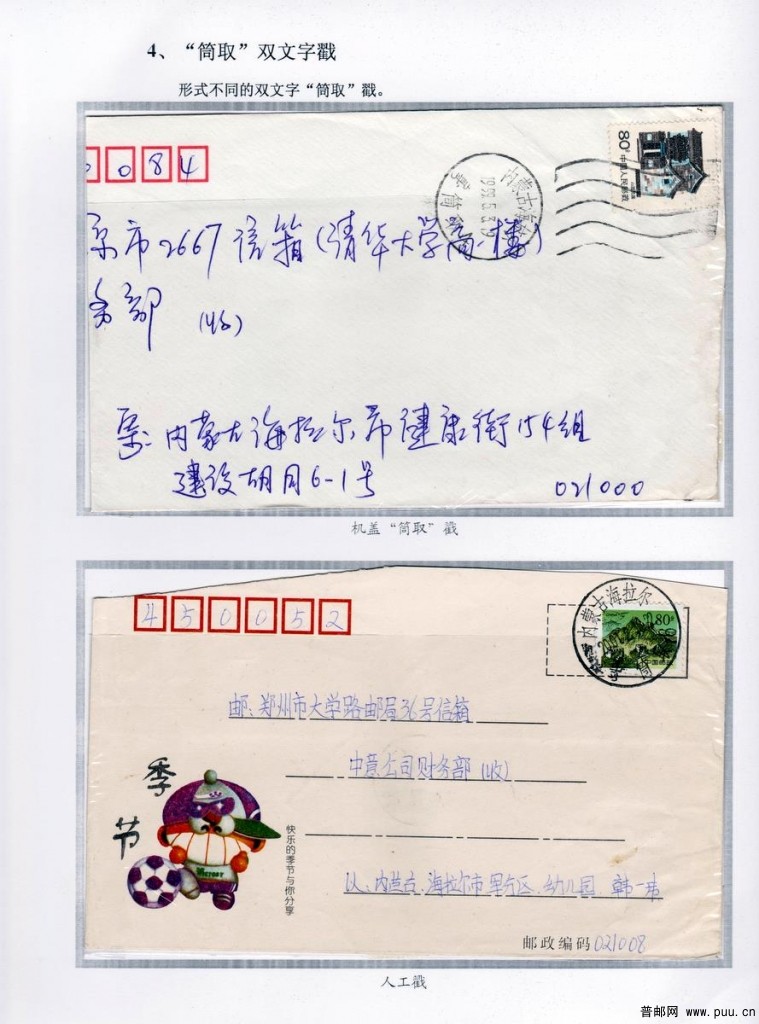 4、“筒取”双文字戳
形式不同的双文字“筒取”戳。
0084
80分
中国人民邮政
内蒙古海拉尔
1999.5.3.19
筒
京市2667信箱(清华大学
务部 (收)
内蒙古海拉尔市健康街154组
建设胡同6-1号 021000
机盖“筒取”戳
450052
内蒙古海拉尔
80分
筒
邮:郑州市大学路邮局36号信箱
中意公司财务部(收)
季
节
快乐的季节与你分享
海拉尔市 区 幼儿园 韩一
邮政编码 021008
人工戳
普邮网 www.puu.cn